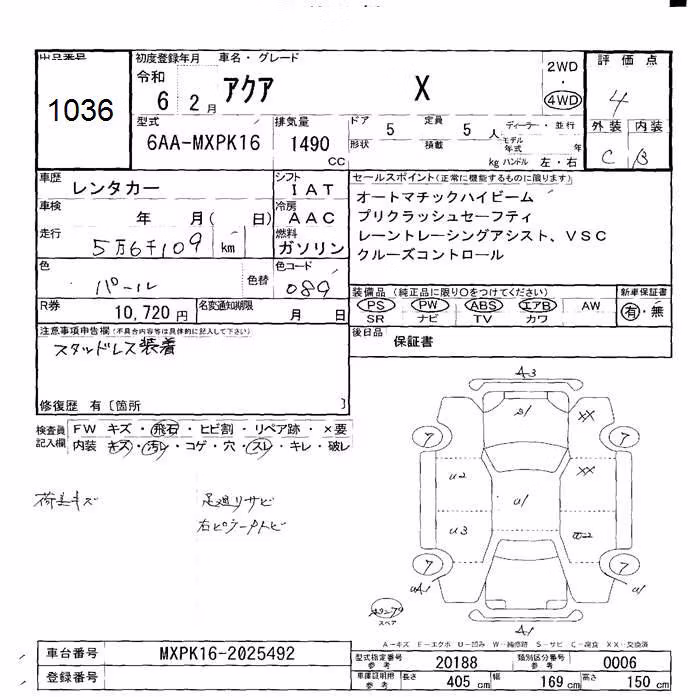 出品番号
1036
初度登録年月 車名・グレード
令和 6年 2月 アクア X
2WD
・
4WD
評価点
4
外装 内装
C B
型式
6AA-MXPK16
排気量
1490
CC
ドア 5 定員 5 人
形状 積載 kg
ディーラー・並行
モデル年式 年
ハンドル 左・右
車歴 レンタカー
シフト
IAT
車検 年 月( 日)
冷房
AAC
走行 5万6千109 km
燃料
ガソリン
色 パール 色替
色コード
089
R券 10,720円
名変通知期限 月 日
セールスポイント(正常に機能するものに限ります)
オートマチックハイビーム
プリクラッシュセーフティ
レーントレーシングアシスト、VSC
クルーズコントロール
装備品 (純正品に限り○をつけてください)
PS PW ABS エアB AW
SR ナビ TV カワ
新車保証書
有・無
後日品 保証書
注意事項申告欄(不具合内容等は具体的に記入して下さい)
スタッドレス装着
修復歴 有〔箇所 〕
検査員記入欄
FW キズ・飛石・ヒビ割・リペア跡・×要
内装 キズ・汚レ・コゲ・穴・スレ・キレ・破レ
足廻リサビ
A3
XX
7 7
U2 XX
U1
U3
7 7
U1
スペア
A1
A-キズ E-エクボ U-凹み W-補修跡 S-サビ C-腐食 XX-交換済
車台番号 MXPK16-2025492
登録番号
型式指定番号 参考 20188 類別区分番号 参考 0006
車庫証明用 参考 長さ 405 cm 幅 169 cm 高さ 150 cm